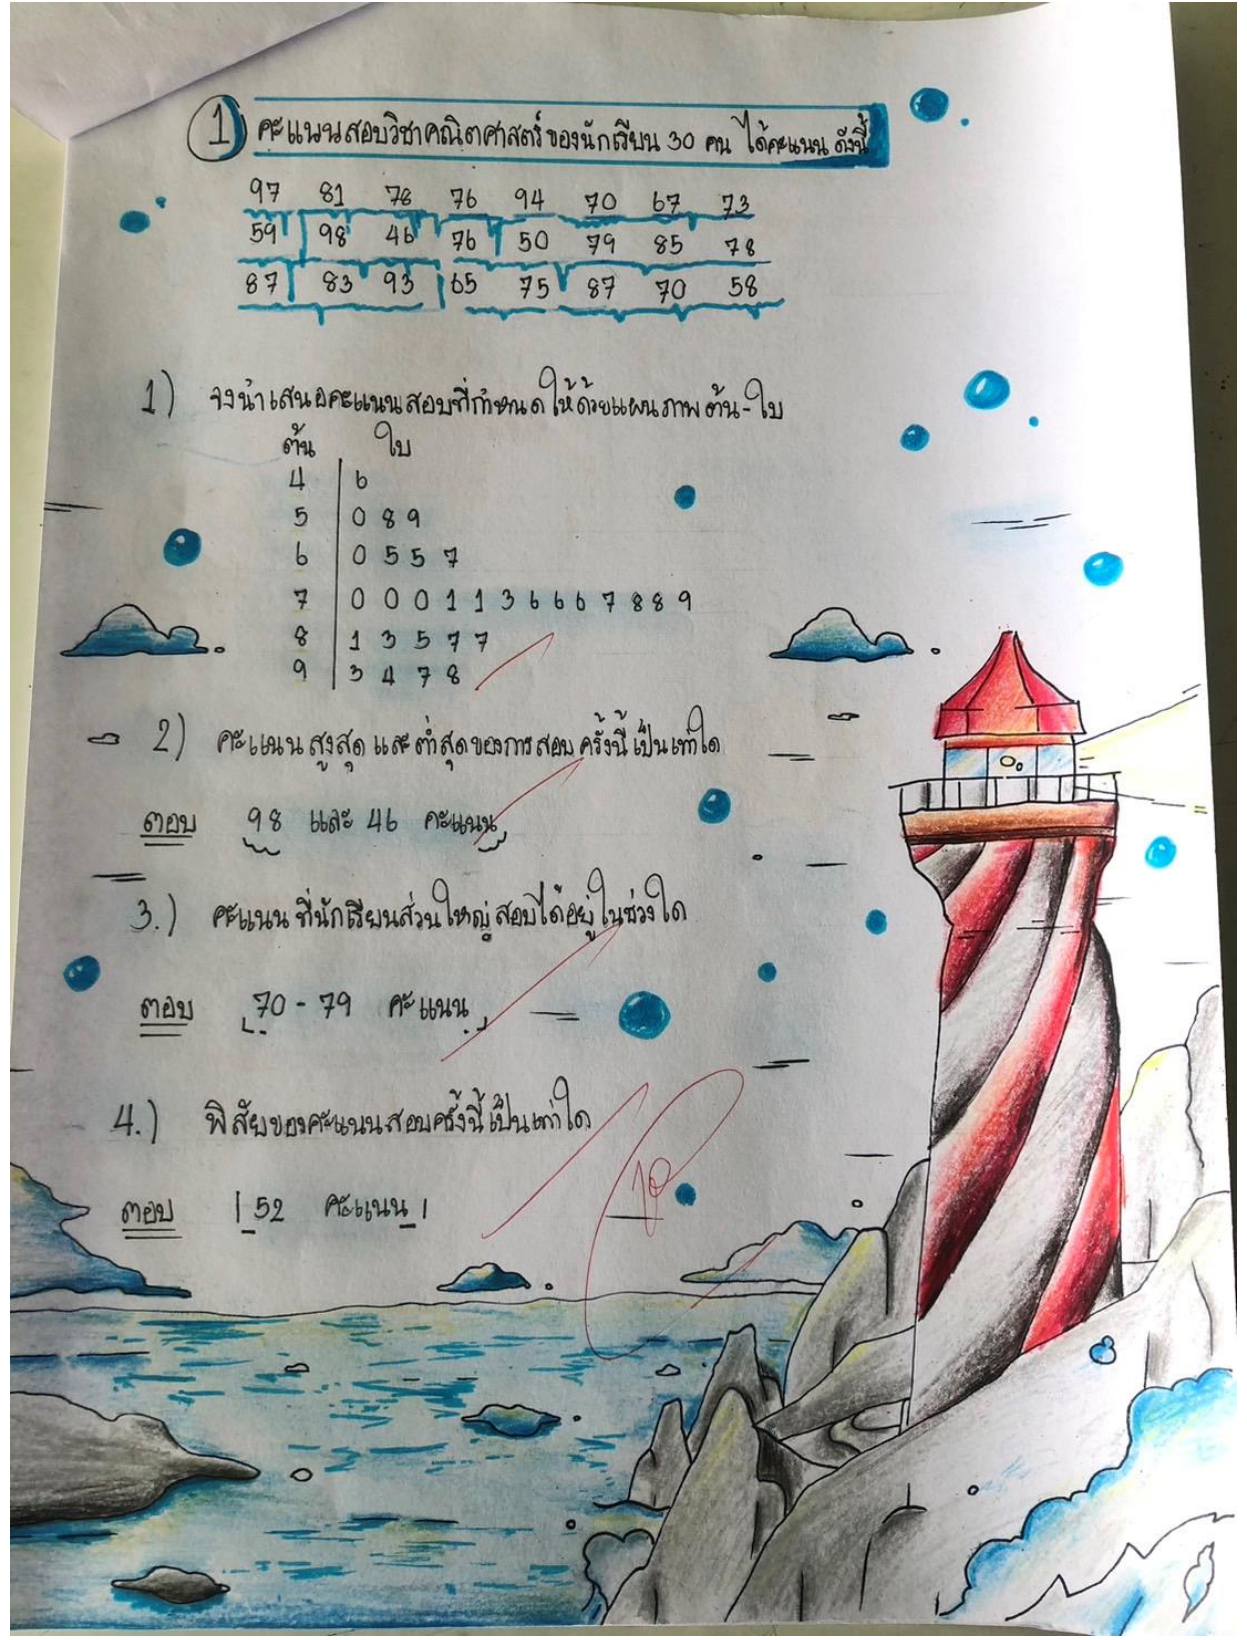 1 คะแนนสอบวิชาคณิตศาสตร์ของนักเรียน 30 คน ได้คะแนน ดังนี้
97 81 78 76 94 70 67 73
59 98 46 76 50 79 85 78
87 83 93 65 75 87 70 58
1) จงนำเสนอคะแนนสอบที่กำหนดให้ด้วยแผนภาพ ต้น-ใบ
ต้น ใบ
4 6
5 0 8 9
6 0 5 5 7
7 0 0 0 1 1 3 6 6 6 7 8 8 9
8 1 3 5 7 7
9 3 4 7 8
2) คะแนนสูงสุด และต่ำสุดของการสอบครั้งนี้เป็นเท่าใด
ตอบ 98 และ 46 คะแนน
3.) คะแนน ที่นักเรียนส่วนใหญ่สอบได้อยู่ในช่วงใด
ตอบ 70 - 79 คะแนน
4.) พิสัยของคะแนนสอบครั้งนี้เป็นเท่าใด
ตอบ 52 คะแนน
10